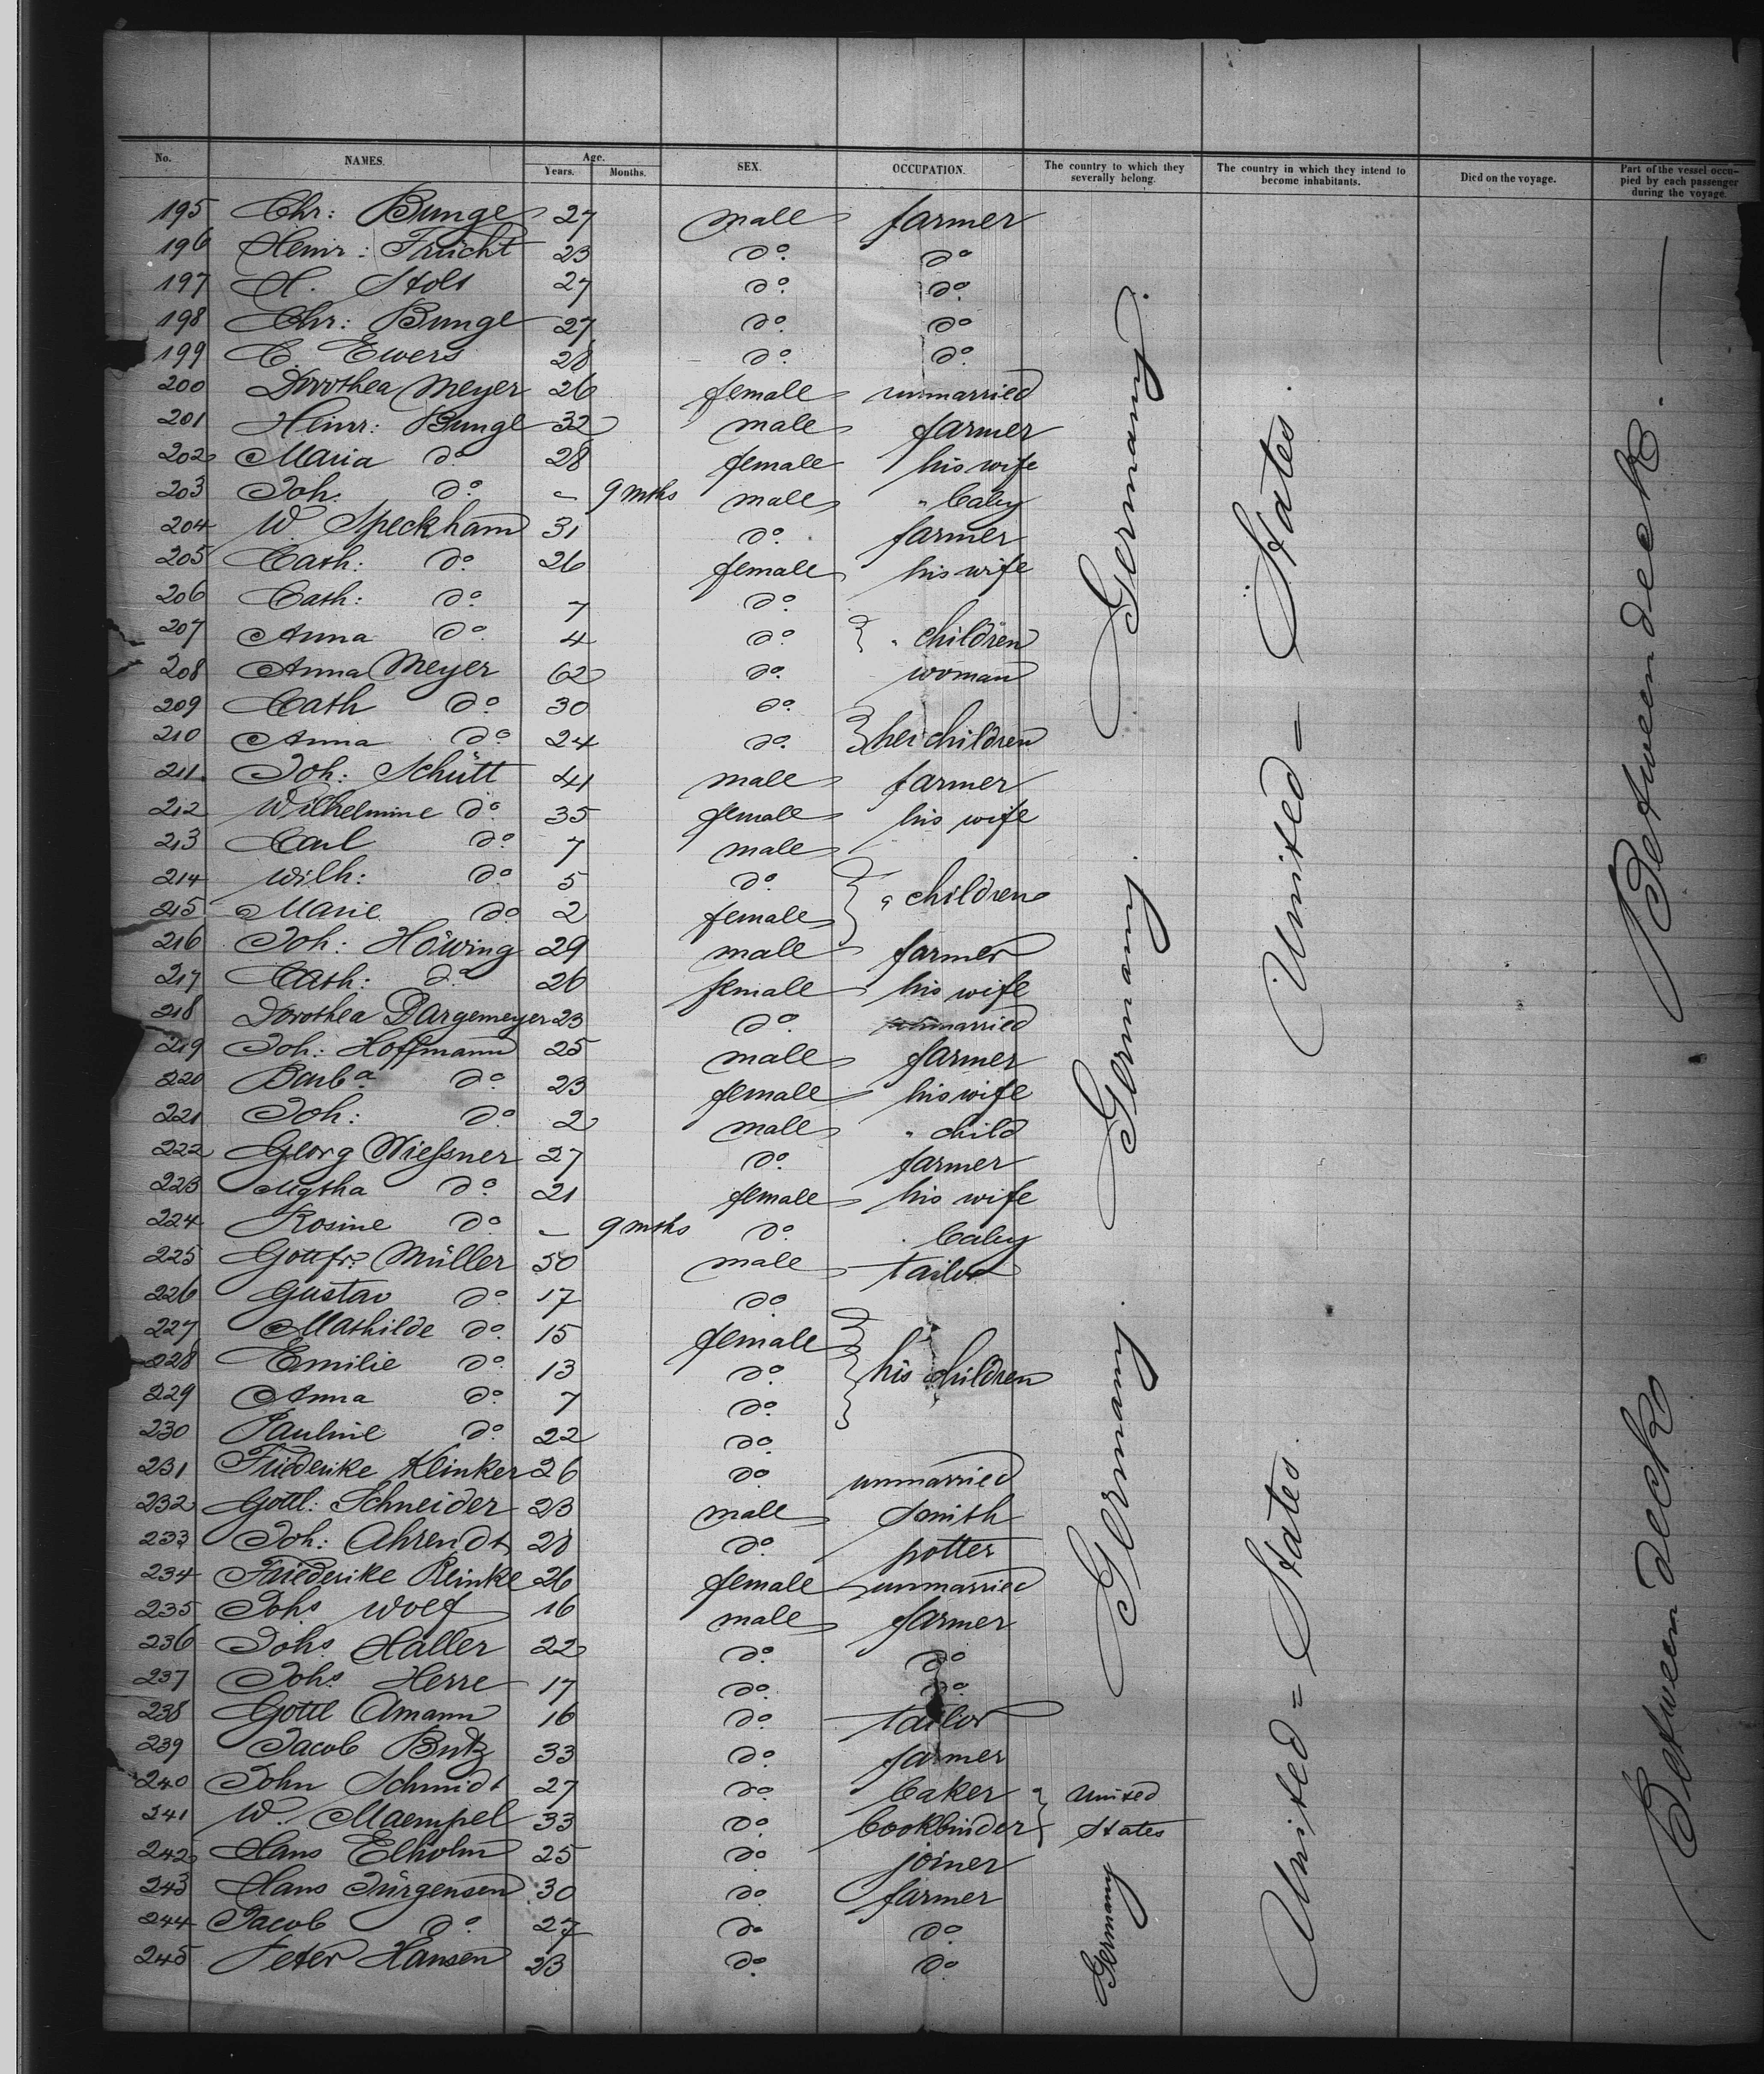 No. NAMES. Age. Years. Months. SEX. OCCUPATION. The country to which they severally belong. The country in which they intend to become inhabitants. Died on the voyage. Part of the vessel occupied by each passenger during the voyage.
195 Chr: Bunge 27 male farmer
196 Heinr: Frücht 23 do. do
197 H. Stolt 27 do. do.
198 Chr: Bunge 27 do. do
199 C. Ewers 28 do. do.
200 Dorothea Meyer 26 female unmarried
201 Heinr: Bunge 32 male farmer
202 Maria do. 28 female his wife
203 Joh. do. – 9 mths male " baby
204 W. Speckhann 31 do. farmer
205 Cath: do. 26 female his wife
206 Cath: do. 7 do.
207 Anna do. 4 do. " children
208 Anna Meyer 62 do. woman
209 Cath do. 30 do.
210 Anna do. 24 do. her children
211 Joh: Schütt 41 male farmer
212 Wilhelmine do. 35 female his wife
213 Carl do. 7 male
214 Wilh: do. 5 do.
215 Marie do 2 female " children
216 Joh: Höwing 29 male farmer
217 Cath: do. 26 female his wife
218 Dorothea Dargemeyer 23 do. unmarried
219 Joh: Hoffmann 25 male farmer
220 Barba do. 23 female his wife
221 Joh: do. 2 male " child
222 Georg Wießner 27 do. farmer
223 Mgtha do. 21 female his wife
224 Rosine do. – 9 mths do. " baby
225 Gottfr: Müller 50 male tailor
226 Gustav do. 17 do.
227 Mathilde do. 15 female
228 Emilie do. 13 do. his children
229 Anna do. 7 do.
230 Pauline do. 22 do.
231 Friederike Klinker 26 do. unmarried
232 Gottl: Schneider 23 male smith
233 Joh: Ahrendt 28 do. potter
234 Friederike Reinke 26 female unmarried
235 Johs Wolf 16 male farmer
236 Johs. Haller 22 do. do.
237 Johs. Herre 17 do. do.
238 Gottl Amann 16 do. tailor
239 Jacob Butz 33 do. farmer
240 John Schmidt 27 do. baker United
241 W. Maempel 33 do. bookbinder States
242 Hans Elholm 25 do. joiner
243 Hans Jürgensen 30 do. farmer
244 Jacob do. 27 do. do.
245 Peter Hansen 23 do. do.
Germany.
Germany.
Germany.
Germany
United = States.
United = States.
Between deck. —
Between deck